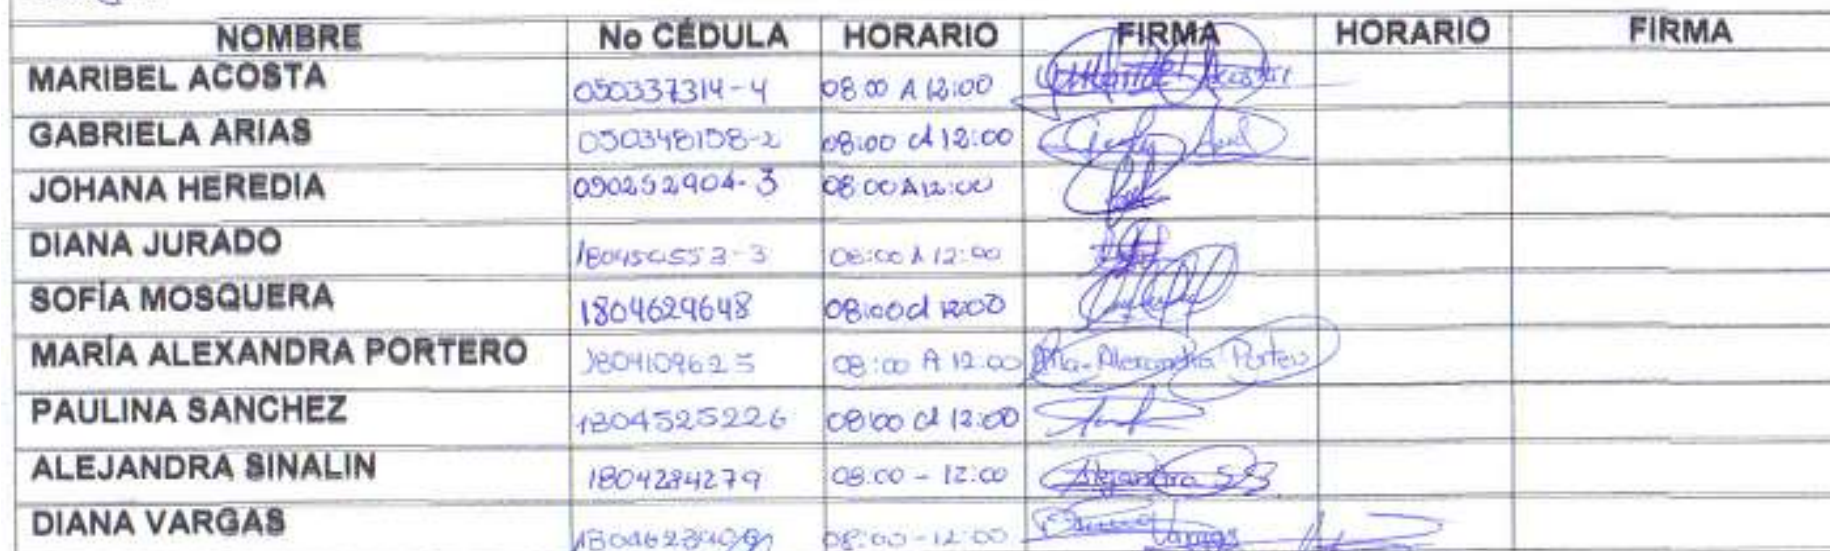 NOMBRE No CÉDULA HORARIO FIRMA HORARIO FIRMA
MARIBEL ACOSTA 050337314-4 08:00 A 12:00
GABRIELA ARIAS 050348158-2 08:00 a 12:00
JOHANA HEREDIA 050252904-3 08:00 A 12:00
DIANA JURADO 08:00 A 12:00
SOFÍA MOSQUERA 1804629648 08:00 a 12:00
MARÍA ALEXANDRA PORTERO 180410962-5 08:00 A 12:00 Ma. Alexandra Portero
PAULINA SANCHEZ 1804525226 08:00 a 12:00
ALEJANDRA SINALIN 1804284279 08:00 - 12:00 Alejandra S.S.
DIANA VARGAS 08:00 - 12:00 Vargas